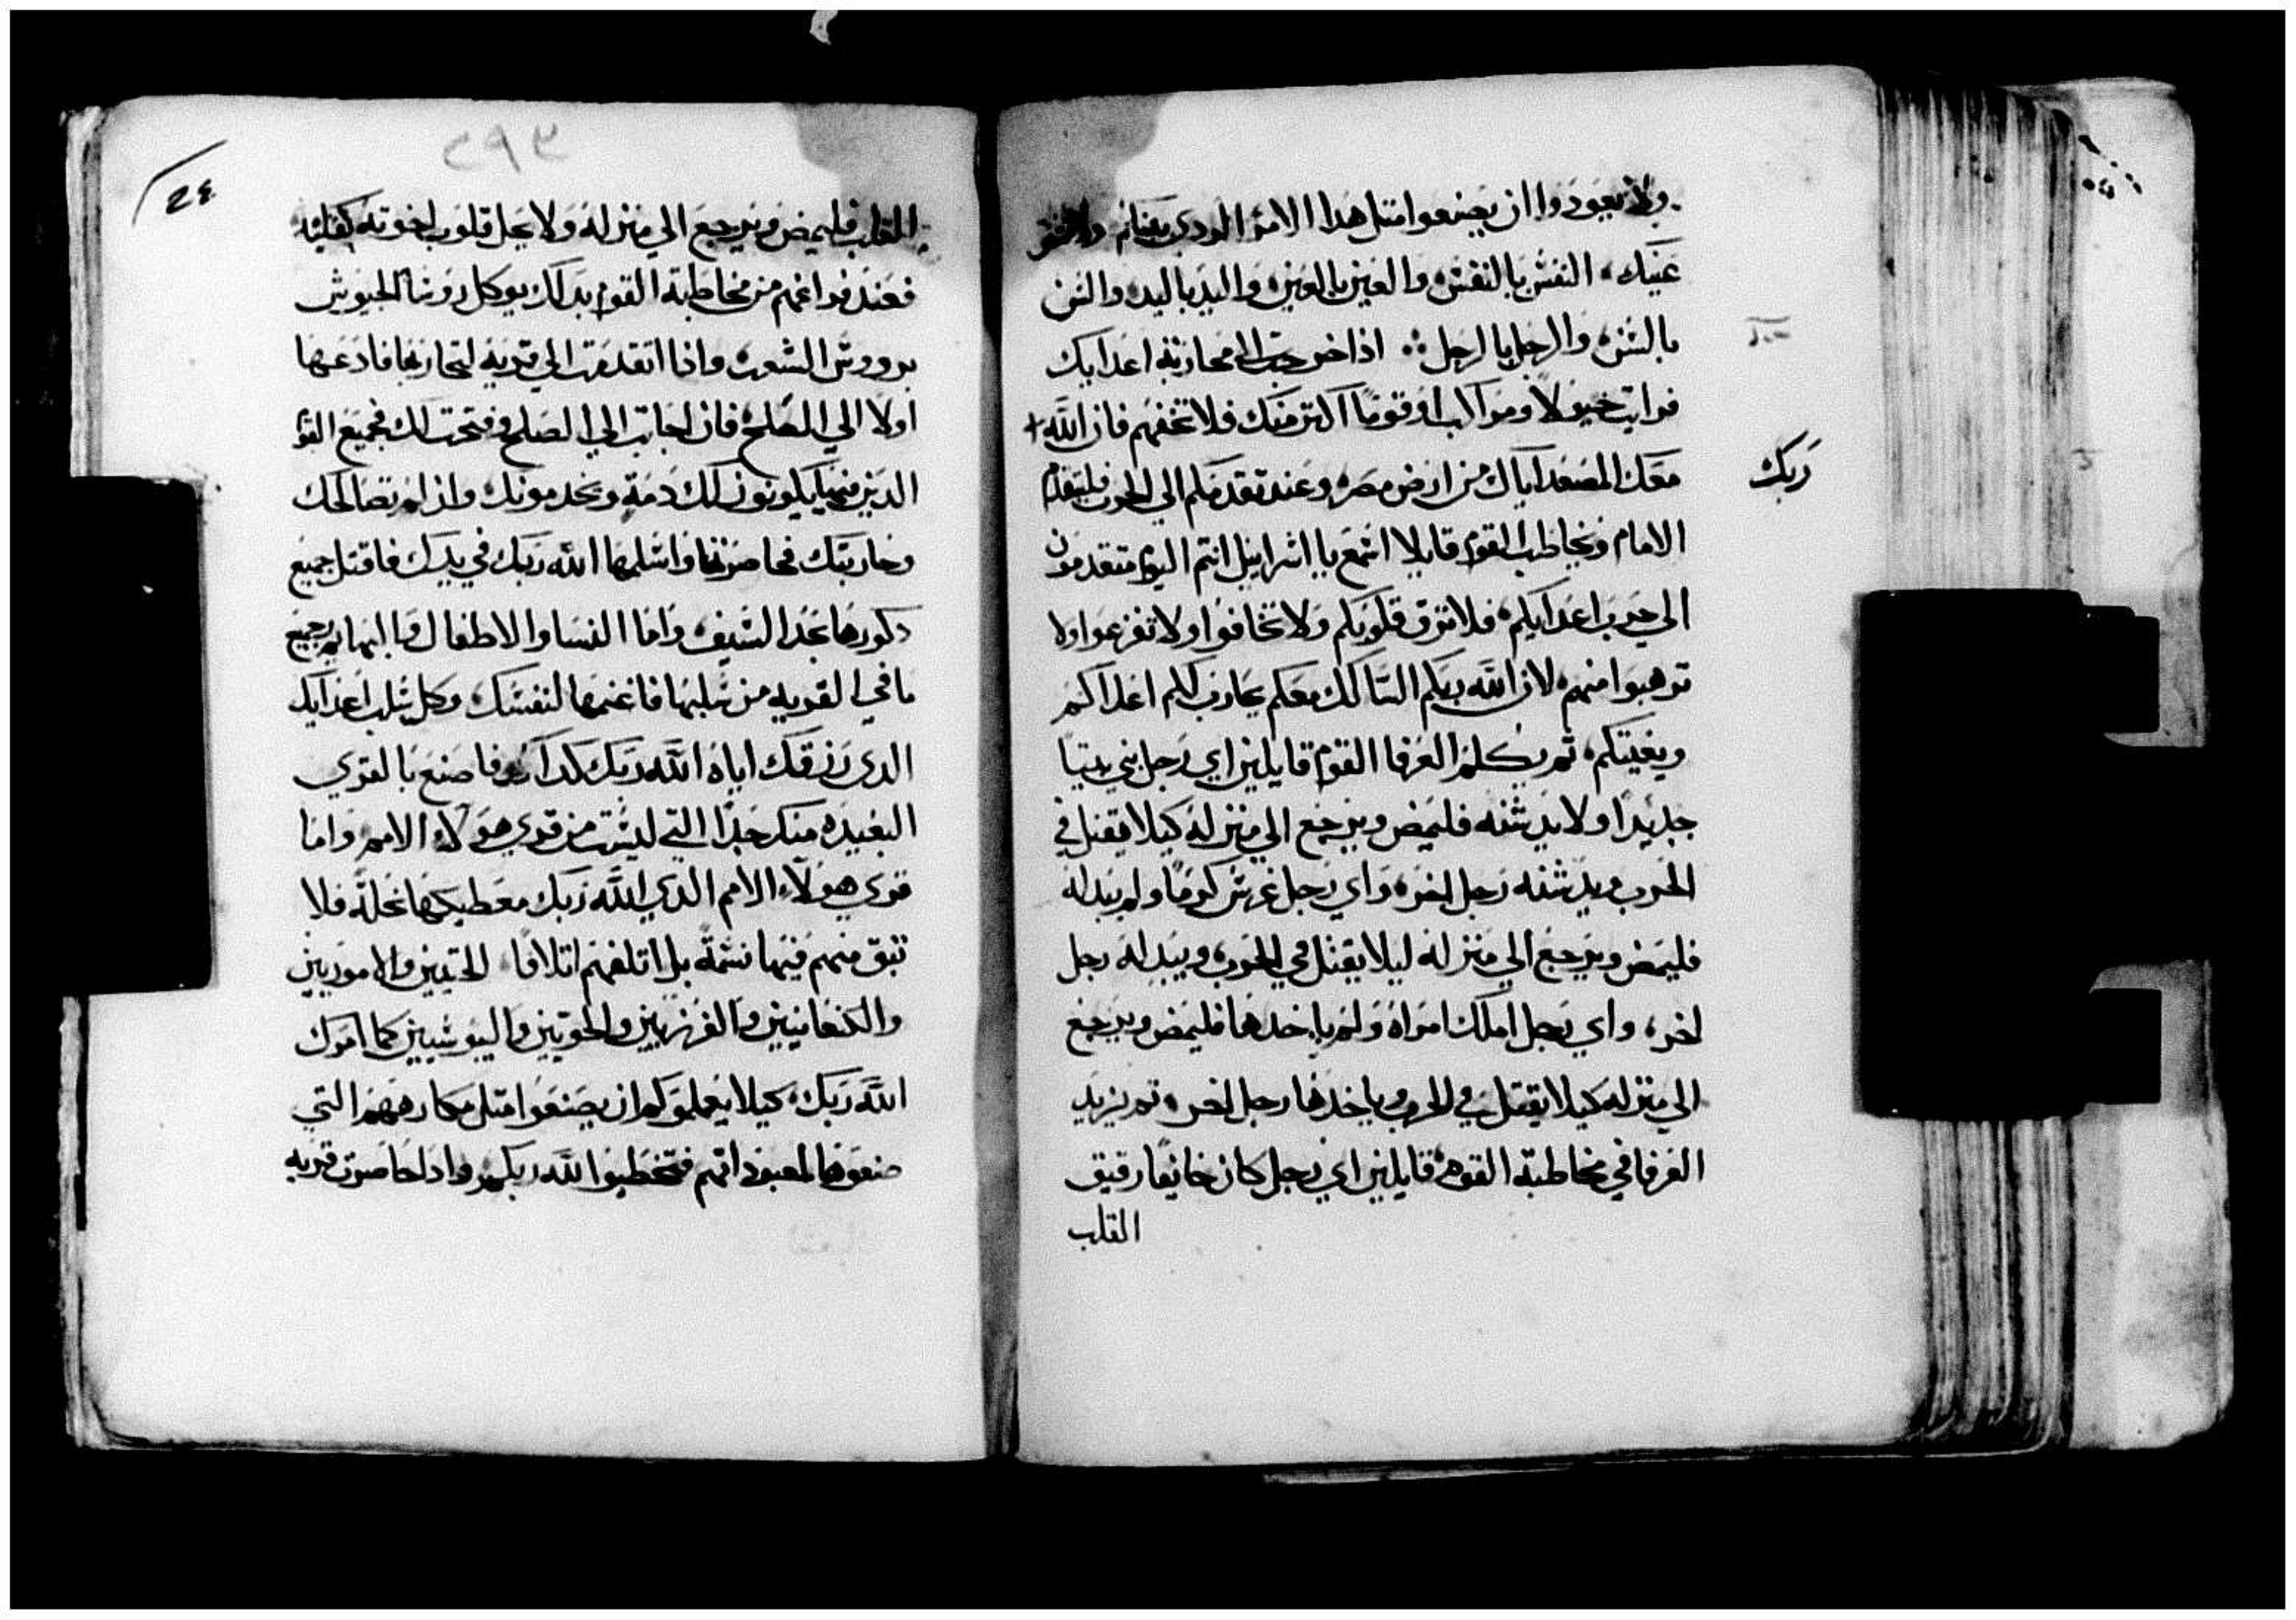 ولا يعودوا ان يصنعوا متل هدا الامر الردي بينكم ولا تشفق
عينك النفس بالنفس والعين بالعين واليد باليد والسن
بالسن والرجل بالرجل اذا خرجت الى محاربة اعدايك
فرايت خيولا ومواكب او قوما اكتر منك فلا تخفهم فان الله +
ربك
معك المصعد اياك من ارض مصر وعند تقدمكم الي الحرب فليتقدم
الامام ويخاطب القوم قايلا اسمع يا اسراييل انتم اليوم متقدمون
الي حرب اعدايكم فلا ترق قلوبكم ولا تخافوا ولا تفزعوا ولا
ترهبوا منهم لان الله ربكم السالك معكم يحارب لكم اعداكم
ويغيتكم تم يكلم العرفا القوم قايلين اي رجل بني بيتا
جديدا ولا يدشنه فليمض ويرجع الي منزله كيلا يقتل في
الحرب ويدشنه رجل اخر واي رجل غرس كرما ولم يبدله
فليمض ويرجع الي منزله ليلا يقتل في الحرب ويبدله رجل
اخر واي رجل املك امراه ولم ياخدها فليمض ويرجع
الي منزله كيلا يقتل في الحرب وياخدها رجل اخر تم يزيد
العرفا في مخاطبة القوم قايلين اي رجل كان خايفا رقيق
القلب
٢٩٣
24
القلب فليمض ويرجع الي منزله ولا يحل قلوب اخوته كقلبه
فعند فراغهم من مخاطبة القوم بدلك يوكل روسا الجيوش
برووس الشعب واذا اتقدمت الي قريه لتحاربها فادعها
اولا الي الصلح فان اجابت الي الصلح وفتحت لك فجميع القوم
الدين فيها يكونون لك دمة ويخدمونك وان لم تصالحك
وحاربتك فحاصرها واسلمها الله ربك في يدك فاقتل جميع
دكورها بحد السيف واما النسا والاطفال والبهايم وجميع
ما في القريه من سلبها فاغنمها لنفسك وكل سلب اعدايك
الدي رزقك اياه الله ربك كدلك فاصنع بالقري
البعيده منك جدا التي ليست من قري هولاء الامم واما
قري هولاء الامم الدي الله ربك معطيكها نحلة فلا
تبق منهم فيها نسمة بل اتلفهم اتلافا الحتيين والاموريين
والكنعانيين والفرزيين والحويين واليبوسيين كما امرك
الله ربك كيلا يعلموكم ان يصنعوا متل مكارههم التي
صنعوها لمعبوداتهم فتخطيوا الله ربكم واذا حاصرت قريه